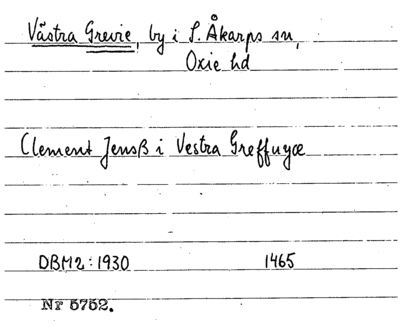 Västra Grevie, by i S. Åkarps sn,
Oxie hd
Clement Jensß i Vestra Greffuyæ
DBM2:1930 1465
Nr 5752.